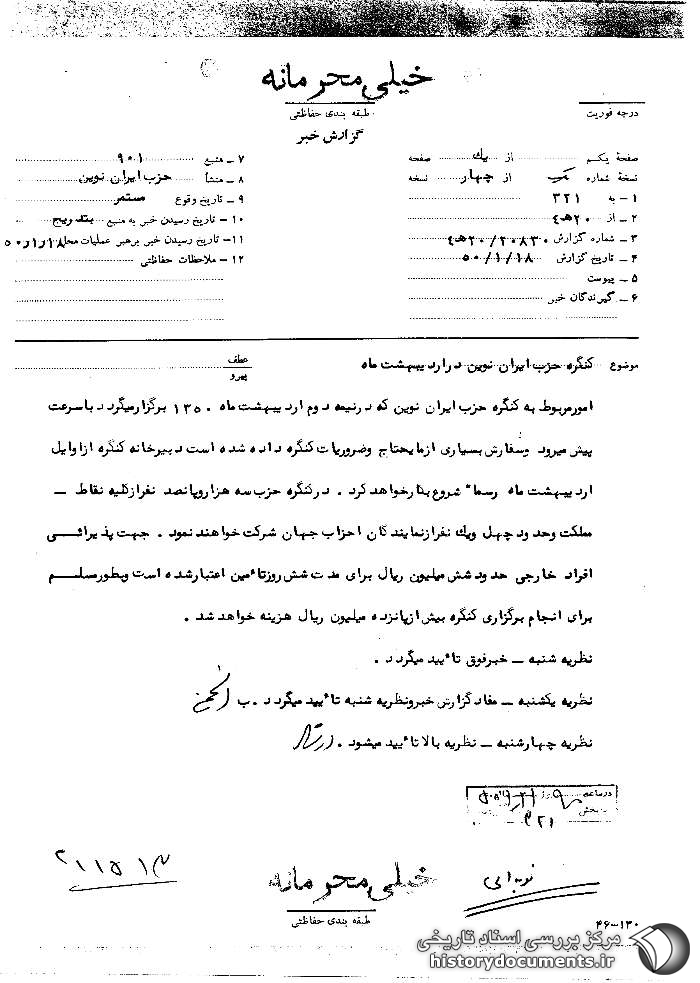 خیلی محرمانه
درجه فوریت
طبقه بندی حفاظتی
گزارش خبر
صفحهٔ یکم از یك صفحه
نسخهٔ شماره یک از چهار نسخه
۱ – به ۳۲۱
۲ – از ۲۰ هـ ٤
۳ – شماره گزارش ۲۰۸۳۰ / ۲۰ هـ ٤
۴ – تاریخ گزارش ۵۰/۱/۱۸
۵ – پیوست
۶ – گیرندگان خبر
۷ – منبع ۹۰۱
۸ – منشأ حزب ایران نوین
۹ – تاریخ وقوع مستمر
۱۰ – تاریخ رسیدن خبر به منبع بتدریج
۱۱– تاریخ رسیدن خبر برهبر عملیات محل ۵۰/۱/۱۸
۱۲ – ملاحظات حفاظتی
موضوع کنگره حزب ایران نوین در اردیبهشت ماه
عطف
پیرو
امور مربوط به کنگره حزب ایران نوین که در نیمه دوم اردیبهشت ماه ۱۳۵۰ برگزار میگردد با سرعت
پیش میرود وسفارش بسیاری از مایحتاج وضروریات کنگره داده شده است دبیرخانه کنگره از اوایل
اردیبهشت ماه رسماً شروع بکار خواهد کرد . در کنگره حزب سه هزار و پانصد نفر از کلیه نقاط –
مملکت وحدود چهل ویك نفر از نمایندگان احزاب جهان شرکت خواهند نمود . جهت پذیرائی
افراد خارجی حدود شش میلیون ریال برای مدت شش روز تأمین اعتبار شده است وبطور مسلم
برای انجام برگزاری کنگره بیش از پانزده میلیون ریال هزینه خواهد شد .
نظریه شنبه – خبر فوق تأیید میگردد .
نظریه یکشنبه – مفاد گزارش خبر ونظریه شنبه تأیید میگردد . ب
نظریه چهارشنبه – نظریه بالا تأیید میشود .
در ساعه روز
به بخش ۳۲۱
خیلی محرمانه
طبقه بندی حفاظتی
۴۶-۱۳۰
مرکز بررسی اسناد تاریخی
historydocuments.ir